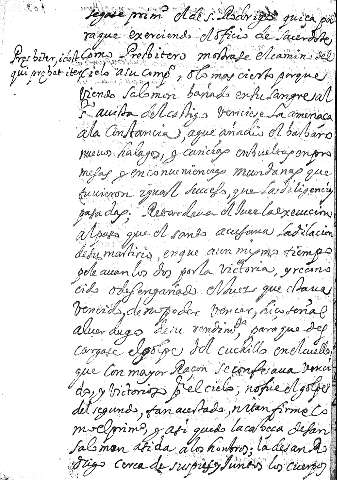 segase prim.º el de S. Rodrigo quiça pa
ra que exerciendo el officio de Sacerdote
Como Presbitero mostrase el camino del
Presbiter, id est
qui præbet iter
Cielo a su Comp.º, o lo mas cierto porque
viendo Salomon bañado en su sangre al
S.º a vista del castigo venciese la amenaça
a la Constancia, a que añadio el barbaro
nuevos halagos, y caricias embueltas en pro
mesas y en conveniencias mundanas que
tuvieron igual suceso, que las diligencias
pasadas; Retardava el Juez la execucion
al paso que el santo acusava la dilacion
de su martirio, en que a un mismo tiempo
peleavan los dos por la victoria, y recono
cido o desengañado el Juez que estava
vencido, de no poder vencer, hiço señal
al verdugo de su rendim.to para que des
cargase el golpe del cuchillo en el cuello,
que con mayor Raçon se confesava venci
do, y victorioso p.ª el cielo, no fue el golpe
del segundo, tan acertado, ni tan firme co
mo el primº, y asi quedo la caveça de san
Salomon asida a los hombros; la de san R
drigo cerca de sus pies y juntos los cuerpos